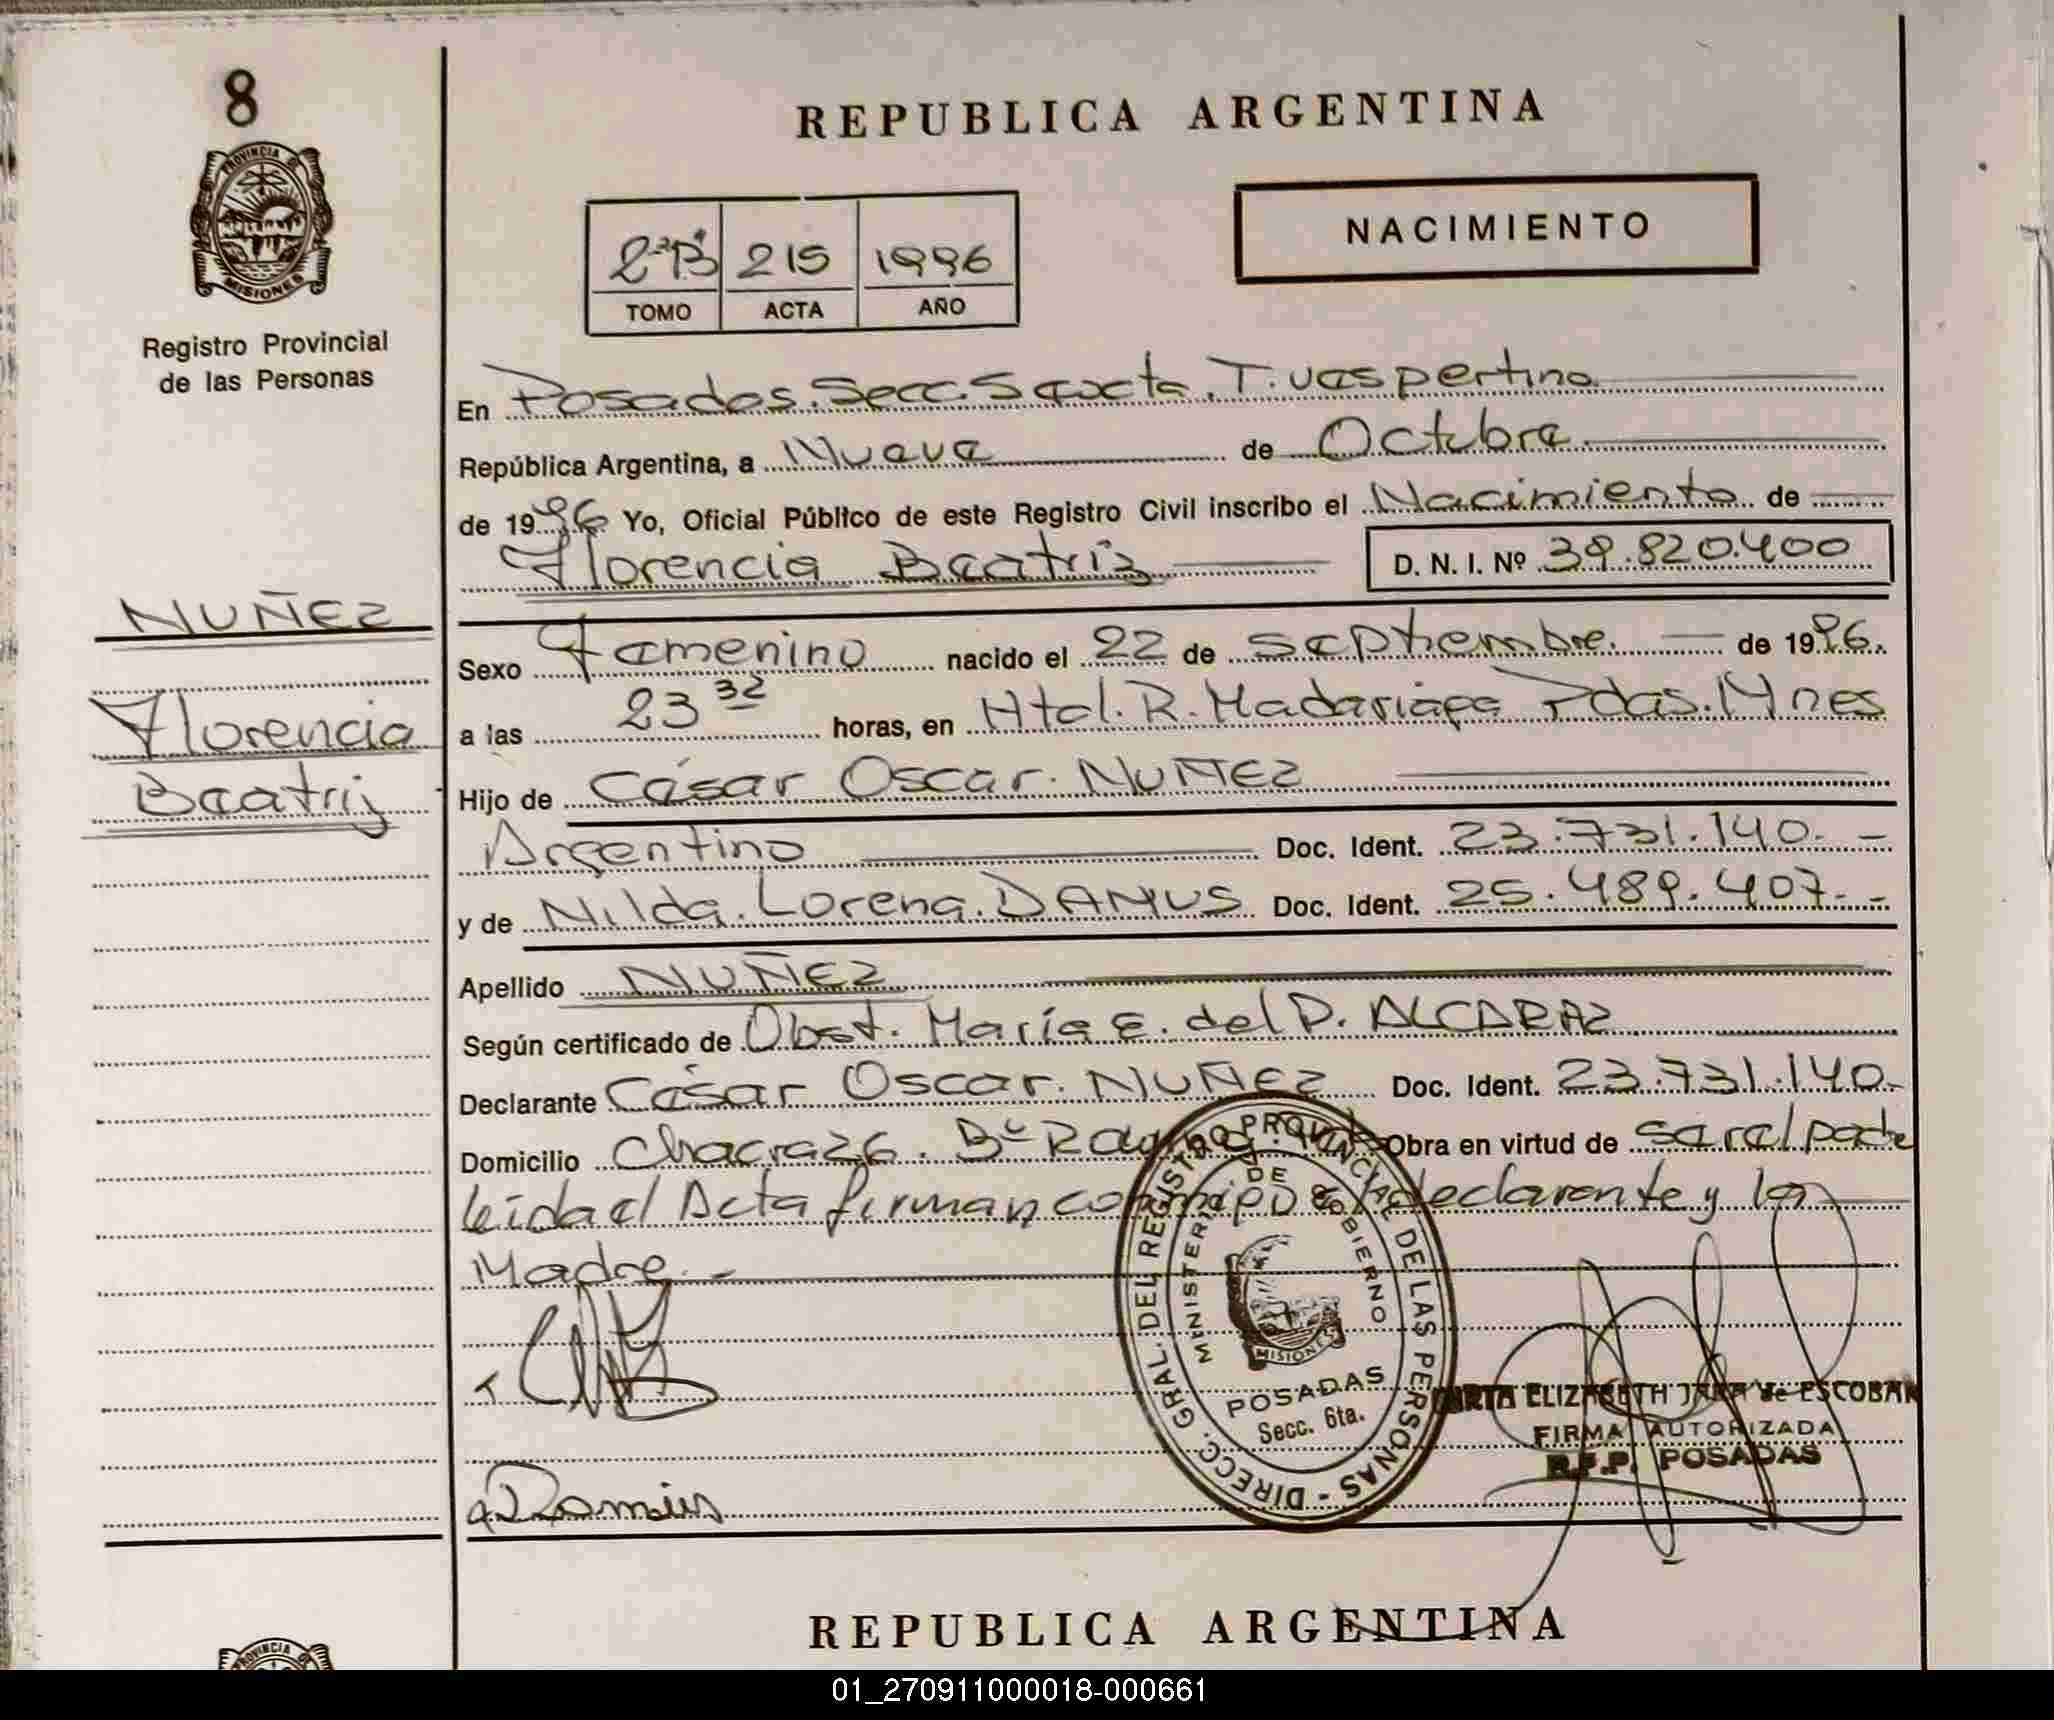 8
PROVINCIA DE
MISIONES
Registro Provincial
de las Personas
NUÑEZ
Florencia
Beatriz
REPUBLICA ARGENTINA
NACIMIENTO
2º"B" 215 1996
TOMO ACTA AÑO
En Posadas. Secc. Sexta. T. vespertino
República Argentina, a Nueve de Octubre
de 1996 Yo, Oficial Público de este Registro Civil inscribo el Nacimiento de
Florencia Beatriz D. N. I. Nº 39.820.400
Sexo Femenino nacido el 22 de Septiembre. de 1996.
a las 23 32 horas, en Htal. R. Madariaga Pdas. Mnes
Hijo de César Oscar. NUÑEZ
Argentino Doc. Ident. 23.731.140.-
y de Nilda. Lorena. DAMUS Doc. Ident. 25.489.407.-
Apellido NUÑEZ
Según certificado de Obst. María E. del P. ALCARAZ
Declarante César Oscar. NUÑEZ Doc. Ident. 23.731.140.-
Domicilio Chacra 26. Bº Obra en virtud de ser el padre
leida el Acta firman conmigo el declarante y la
Madre.-
DIRECC. GRAL. DEL REGISTRO PROVINCIAL DE LAS PERSONAS -
MINISTERIO DE GOBIERNO
MISIONES
POSADAS
Secc. 6ta.
ELIZABETH JARA de ESCOBAR
FIRMA AUTORIZADA
R.P.P. POSADAS
PROVINCIA DE
REPUBLICA ARGENTINA
01_270911000018-000661